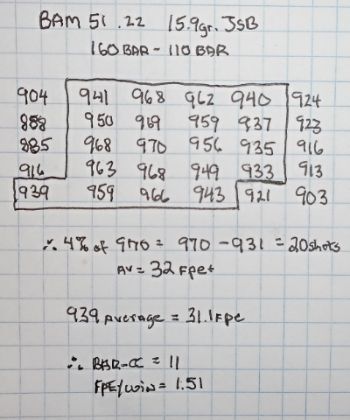 BAM 51 .22 15.9gr. JSB
160 BAR - 110 BAR
904 941 968 962 940 924
888 950 969 959 937 923
885 968 970 956 935 916
916 963 968 949 933 913
939 959 966 943 921 903
∴ 4% of 970 = 970 - 931 = 20 shots
AV = 32 FPE+
939 Average = 31.1 FPE
∴ BAR-CC = 11
FPE/ = 1.51